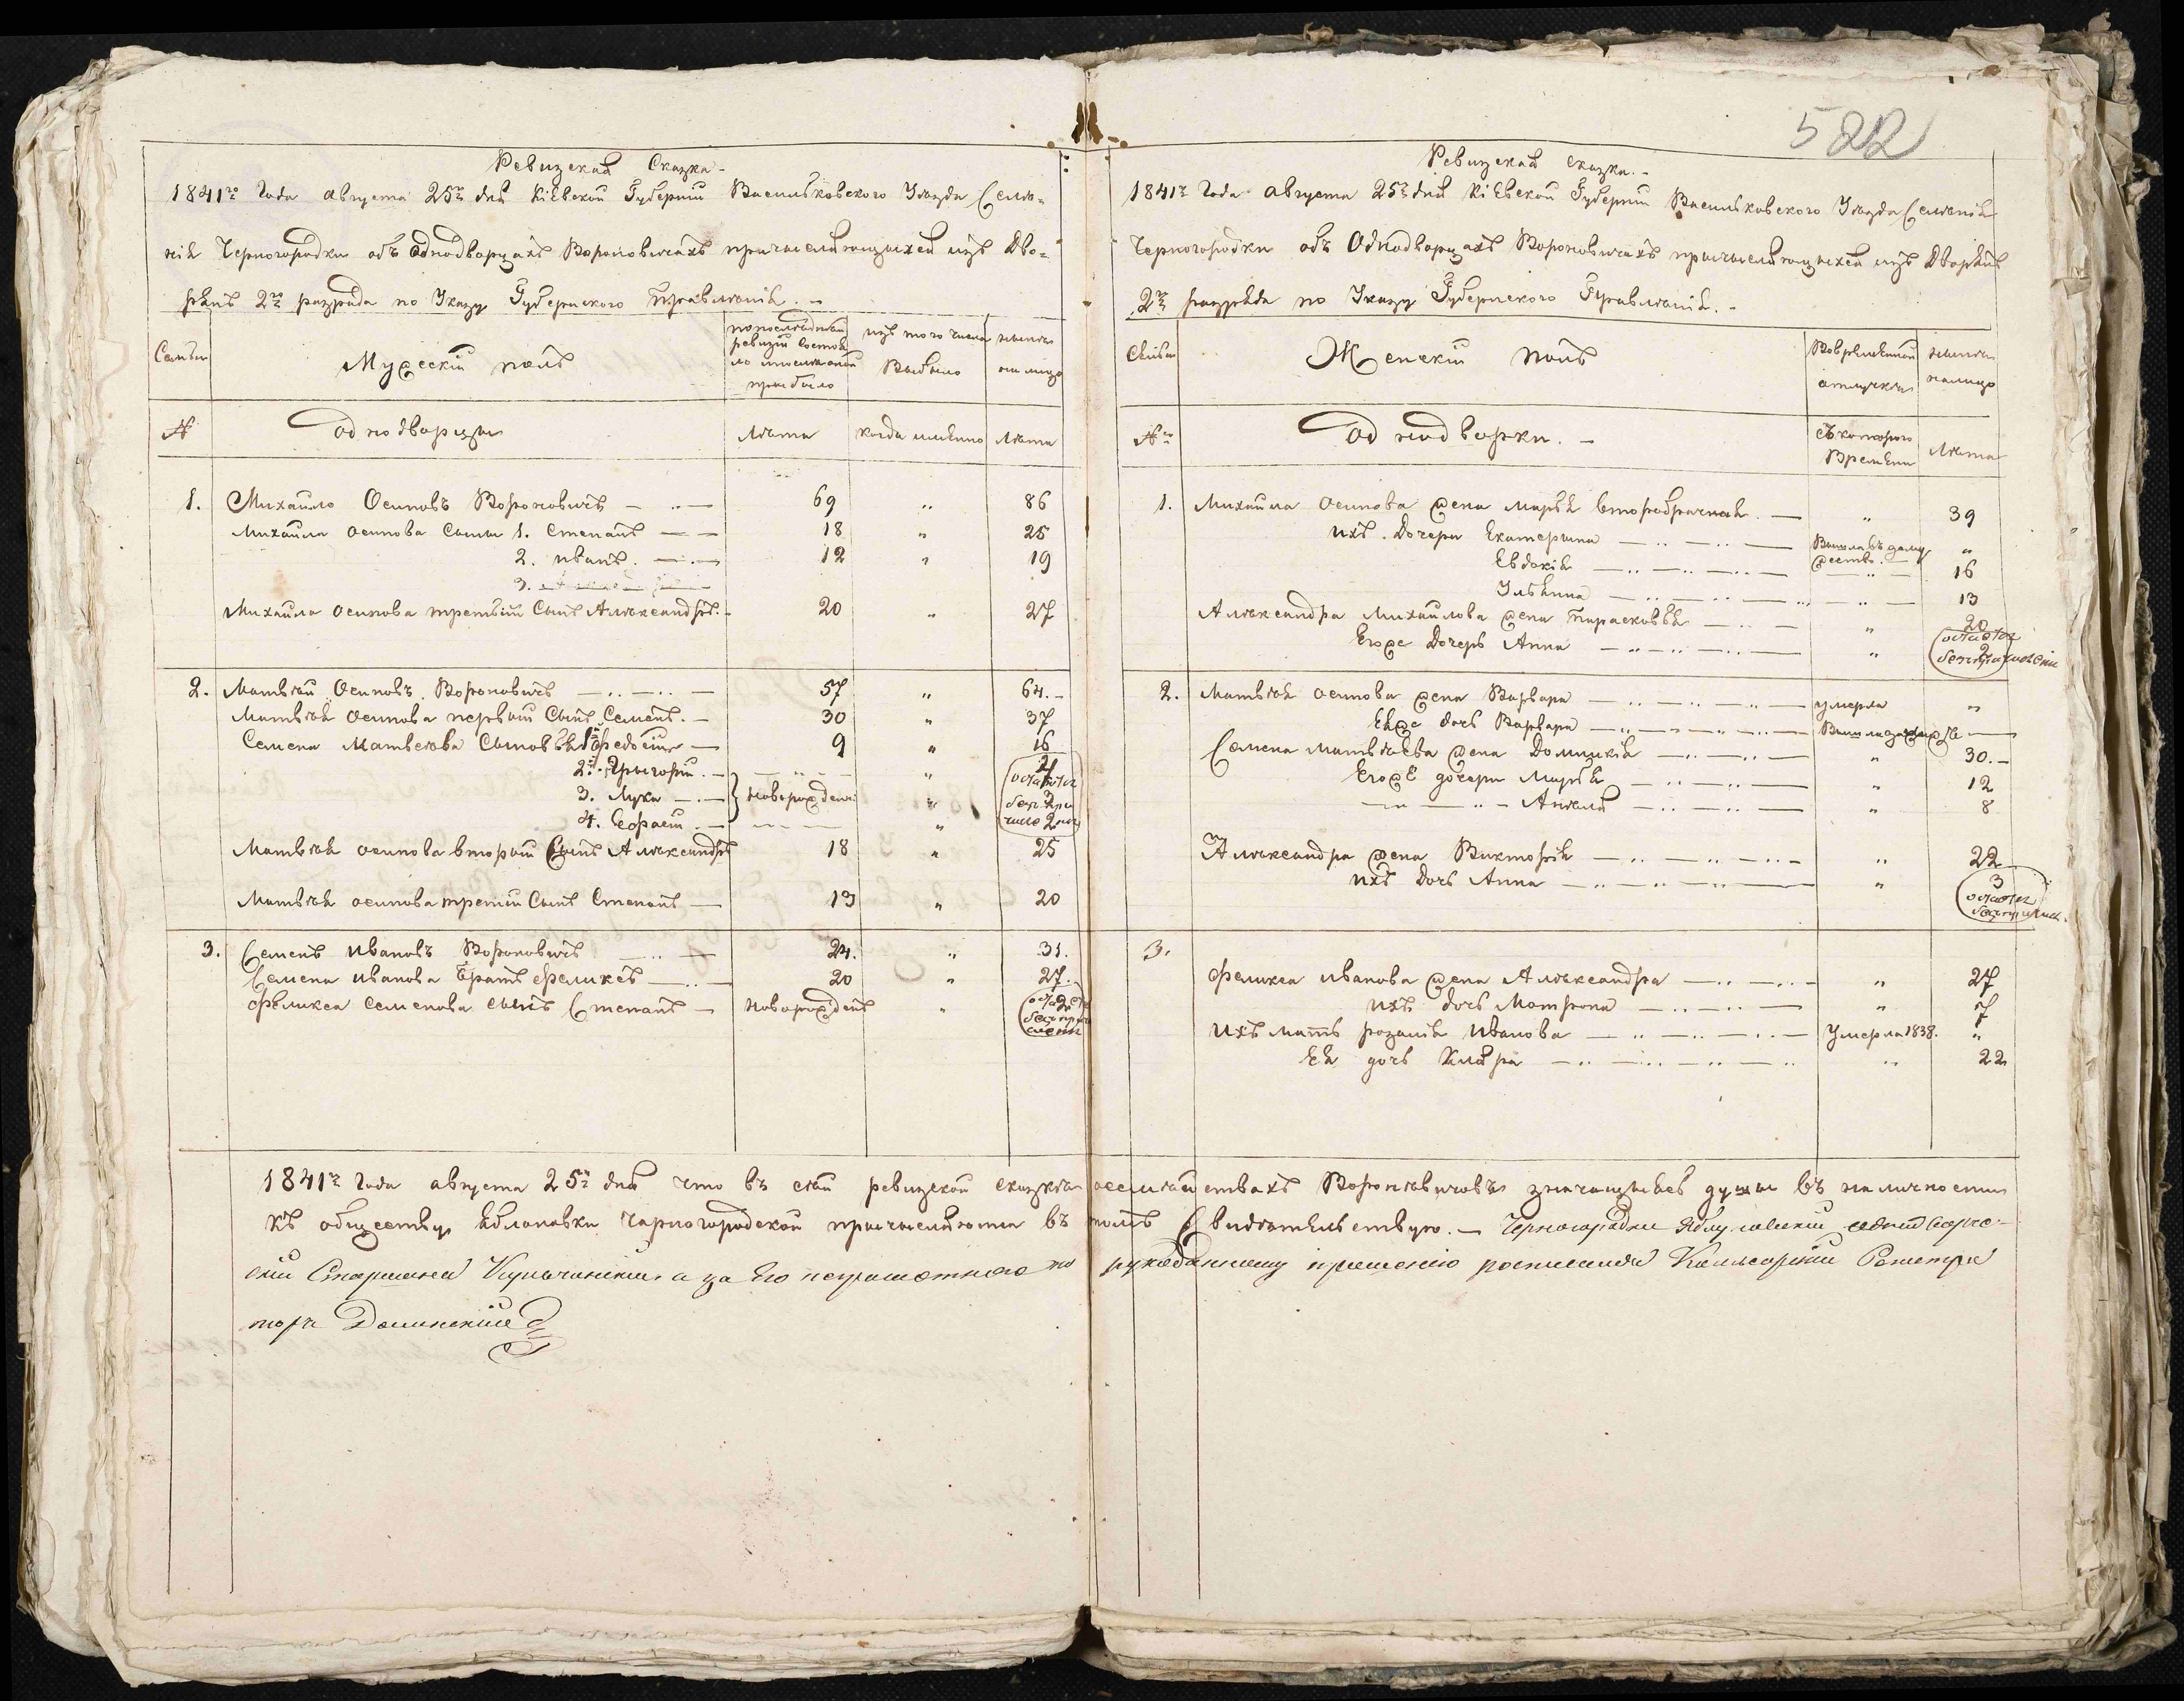 522
Ревизская Сказка.-
1841го Года августа 25го дня Кіевской Губерніи Васильковского Уѣзда Селѣ=
нія Черногородки объ однодворцахъ Вороновичахъ причисляющихся изъ Дво=
рянъ 2го разряда по Указу Губернского Правлѣнія. -
Семьи
Мужескій полъ
по послѣдней ревизіи состоя ло и послѣ оной прибыло
изъ того числа Выбыло
нынѣ на лицо
№
Однодворцы
Лѣта
когда именно
Лѣта
1. Михайло Осиповъ Вороновичъ — 69 " 86
Михайла Осипова Сыны 1. Степанъ — 18 " 25
2. иванъ. — 12 " 19
3.
Михайла Осипова третьій Сынъ Алѣксандръ. - 20 " 27
2. Матвѣй Осиповъ Вороновичъ — 57 " 64. -
Матвѣя Осипова первый Сынъ Семенъ. - 30 " 37
Семена Матвеѣва Сыновья 1й Федосій — 9 " 16
2й Григорій. — "
3. Лука — новорожден: " 3
4. Еофаст. — " 2
остаются без причисленія
Матвѣя осипова вторый Сынъ Алѣксандръ 18 " 25
Матвѣя осипова третій Сынъ Степанъ — 13 " 20
3. Семенъ Ивановъ Вороновичъ — 24. " 31.
Семена Иванова Братъ Феликсъ — 20 " 27.
Феликса Семенова сынъ Степанъ — Новорожденъ " 2
остается без причисленія
Ревизская Сказка. -
1841го Года августа 25го дня Кіевской Губерніи Васильковского Уѣзда Селѣнія
Черногородки объ Однодворцахъ Вороновичахъ причисляющихся изъ Дворянъ
2го разряда по Указу Губернского Правлѣнія. -
Семьи
Женскій полъ
Во временной отлучкѣ
нынѣ налицо
№
Однодворки. -
Съ которого Времени
Лѣта
1. Михайла Осипова жена марья второбрачная. — " 39
ихъ Дочери Екатерина — Вышла въ замужество. "
Евдокія — 16
Ульянна — 13
Алѣксандра Михайлова жена Парасковья — " 20
Егоже Дочерь Анна — " 2
остаются без причисленія
2. Матвѣя осипова жена Варвара — умерла "
Еяже дочь Варвара — Вышла замужъ —
Семена Матвѣева жена Домицкія — " 30. -
Егожѣ дочери Марья — " 12
— Анѣля — " 8
Алѣксандра жена Викторія — " 22
ихъ дочь Анна — " 3
остается без причисл.
3.
Феликса иванова жена Алѣксандра — " 27
ихъ дочь Матрона — " 7
ихъ мать розалія Иванова — Умерла 1838. "
Ея дочь Кляра — " 22
1841го Года августа 25го дня что въ сѣй ревизской сказкѣ о семѣйствахъ Вороновичовъ значащіеся души въ наличности
къ обществу яблоновки Чарногородской причисляются въ томъ Свидѣтельствую. — Черногородки Яблуновскій однодворче-
скій Старшина Кульчинскій. а за Его неграмотного по рукоданному прошенію росписался Коллежскій Регистра
торъ Долинскій